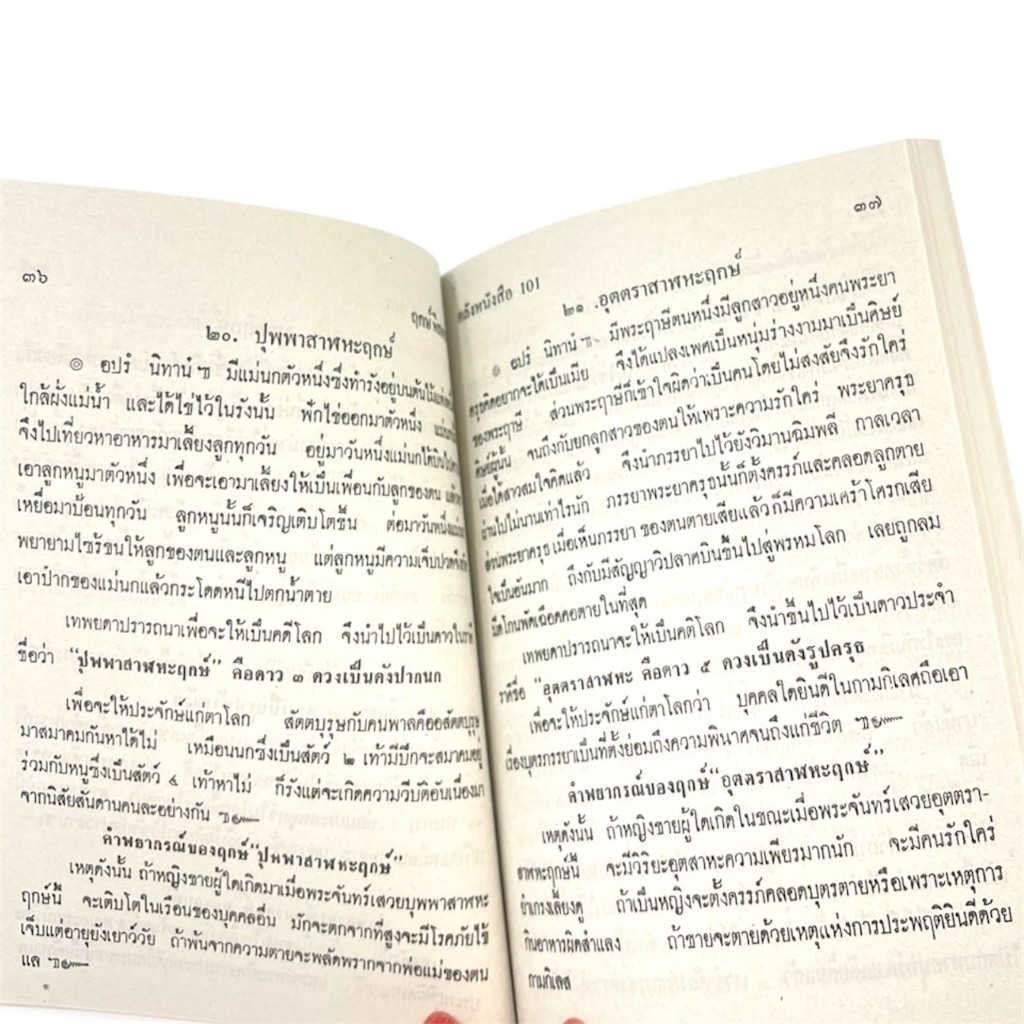 ๓๖
ฤกษ์
๒๐. ปุพพาสาฬหะฤกษ์
๏ อปรํ นิทานํ ฯ มีแม่นกตัวหนึ่งซึ่งทำรังอยู่บนต้นไม้แห่ง
ใกล้ฝั่งแม่น้ำ และได้ไข่ไว้ในรังนั้น ฟักไข่ออกมาตัวหนึ่ง
จึงไปเที่ยวหาอาหารมาเลี้ยงลูกทุกวัน อยู่มาวันหนึ่งแม่นกได้บินไป
เอาลูกหนูมาตัวหนึ่ง เพื่อจะเอามาเลี้ยงให้เป็นเพื่อนกับลูกของตน
เหยื่อมาป้อนทุกวัน ลูกหนูนั้นก็เจริญเติบโตขึ้น ต่อมาวันหนึ่ง
พยายามไซร้ขนให้ลูกของตนและลูกหนู แต่ลูกหนูมีความเจ็บปวดจึง
เอาปากของแม่นกแล้วกระโดดหนีไปตกน้ำตาย
เทพยดาปรารถนาเพื่อจะให้เป็นคดีโลก จึงนำไปไว้เป็นดาวในราศี
ชื่อว่า “ปุพพาสาฬหะฤกษ์” คือดาว ๓ ดวงเป็นดังปากนก
เพื่อจะให้ประจักษ์แก่ตาโลก สัตตบุรุษกับคนพาลคืออสัตตบุรุษ
มาสมาคมกันหาได้ไม่ เหมือนนกซึ่งเป็นสัตว์ ๒ เท้ามีปีกจะสมาคมอยู่
ร่วมกับหนูซึ่งเป็นสัตว์ ๔ เท้าหาไม่ ก็รังแต่จะเกิดความวิบัติอันเนื่องมา
จากนิสัยสันดานคนละอย่างกัน ๚ะ๛
คำพยากรณ์ของฤกษ์ “ปุพพาสาฬหะฤกษ์”
เหตุดังนั้น ถ้าหญิงชายผู้ใดเกิดมาเมื่อพระจันทร์เสวยบุพพาสาฬหะ
ฤกษ์นี้ จะเติบโตในเรือนของบุคคลอื่น มักจะตกจากที่สูงจะมีโรคภัยไข้
เจ็บแต่อายุยังเยาว์วัย ถ้าพ้นจากความตายจะพลัดพรากจากพ่อแม่ของตน
แล ๚ะ๛
๓๗
คลังหนังสือ 101
๒๑ .อุตตราสาฬหะฤกษ์
๏ อปรํ นิทานํ ฯ มีพระฤาษีตนหนึ่งมีลูกสาวอยู่หนึ่งคนพระยา
ครุฑคิดอยากจะได้เป็นเมีย จึงได้แปลงเพศเป็นหนุ่มร่างงามมาเป็นศิษย์
ของพระฤาษี ส่วนพระฤาษีก็เข้าใจผิดว่าเป็นคนโดยไม่สงสัยจึงรักใคร่
ศิษย์ผู้นั้น จนถึงกับยกลูกสาวของตนให้เพราะความรักใคร่ พระยาครุธ
เมื่อได้สาวสมใจคิดแล้ว จึงนำภรรยาไปไว้ยังวิมานฉิมพลี กาลเวลา
ผ่านไปไม่นานเท่าไรนัก ภรรยาพระยาครุธนั้นก็ตั้งครรภ์และคลอดลูกตาย
พระยาครุธ เมื่อเห็นภรรยา ของตนตายเสียแล้ว ก็มีความเศร้าโศรกเสีย
ใจเป็นอันมาก ถึงกับมีสัญญาวิปลาศบินขึ้นไปสู่พรหมโลก เลยถูกลม
พัดเฉือดคอตายในที่สุด
เทพยดาปรารถนาจะให้เป็นคติโลก จึงนำขึ้นไปไว้เป็นดาวประจำ
ราศีชื่อ “อุตตราสาฬหะ คือดาว ๕ ดวงเป็นดังรูปครุธ
เพื่อจะให้ประจักษ์แก่ตาโลกว่า บุคคลใดยินดีในกามกิเลศถือเอา
เรื่องบุตรภรรยาเป็นที่ตั้งย่อมถึงความพินาศจนถึงแก่ชีวิต ๚ะ๛
คำพยากรณ์ของฤกษ์ “อุตตราสาฬหะฤกษ์”
เหตุดังนั้น ถ้าหญิงชายผู้ใดเกิดในขณะเมื่อพระจันทร์เสวยอุตตรา-
สาฬหะฤกษ์นี้ จะมีวิริยะอุตสาหะความเพียรมากนัก จะมีคนรักใคร่
ยำเกรงเลี้ยงดู ถ้าเป็นหญิงจะตั้งครรภ์คลอดบุตรตายหรือเพราะเหตุการ
กินอาหารผิดสำแลง ถ้าชายจะตายด้วยเหตุแห่งการประพฤติยินดีด้วย
กามกิเลส